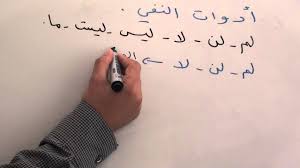 أدوات النفي .
لم - لن - لا - ليس - ليست - ما .
لم - لن - لا